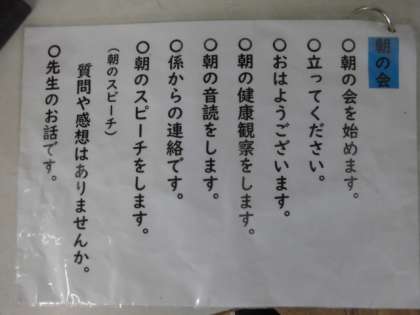 朝の会
○朝の会を始めます。
○立ってください。
○おはようございます。
○朝の健康観察をします。
○朝の音読をします。
○係からの連絡です。
○朝のスピーチをします。
(朝のスピーチ)
質問や感想はありませんか。
○先生のお話です。